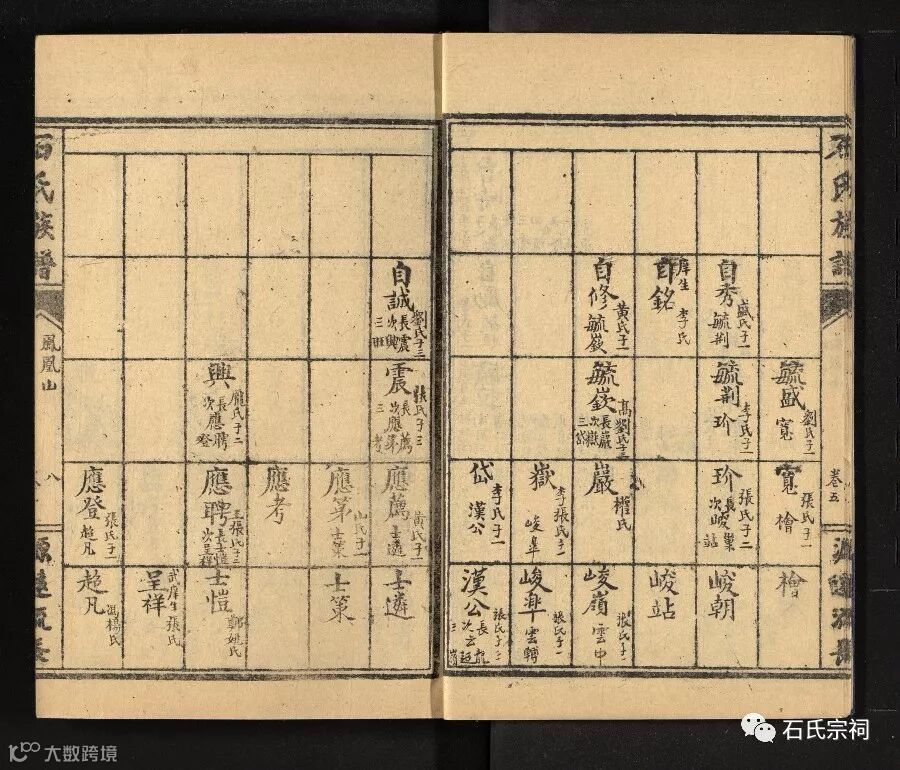 石氏族譜
卷五
源遠流長
自秀
盛氏子一
毓荆
自銘
庠生
李氏
自修
黃氏子一
毓嶔
毓盛
劉氏子一
寬
毓荆
李氏子一
玠
毓嶔
高劉氏子三
長巖
次嶽
三岱
寬
張氏子一
檜
玠
張氏子二
長峻巢
次峻站
巖
權氏
嶽
李張氏子一
峻阜
岱
李氏子一
漢公
檜
峻朝
峻站
峻嶺
張氏子一
雲中
峻阜
張氏子一
雲騁
漢公
張氏子三
自誠
劉氏子三
長震
次興
三旺
震
張氏子三
長應薦
次應第
三考
興
龐氏子二
長應聘
次應登
應薦
黃氏子一
士遴
應第
山氏子一
士策
應考
應聘
王張氏子二
長士愷
次呈祥
應登
張氏子一
超凡
士遴
士策
士愷
鄭姚氏
呈祥
武庠生
張氏
超凡
馮楊氏
石氏族譜
鳳凰山
八
源遠流長
石氏宗祠
大数跨境